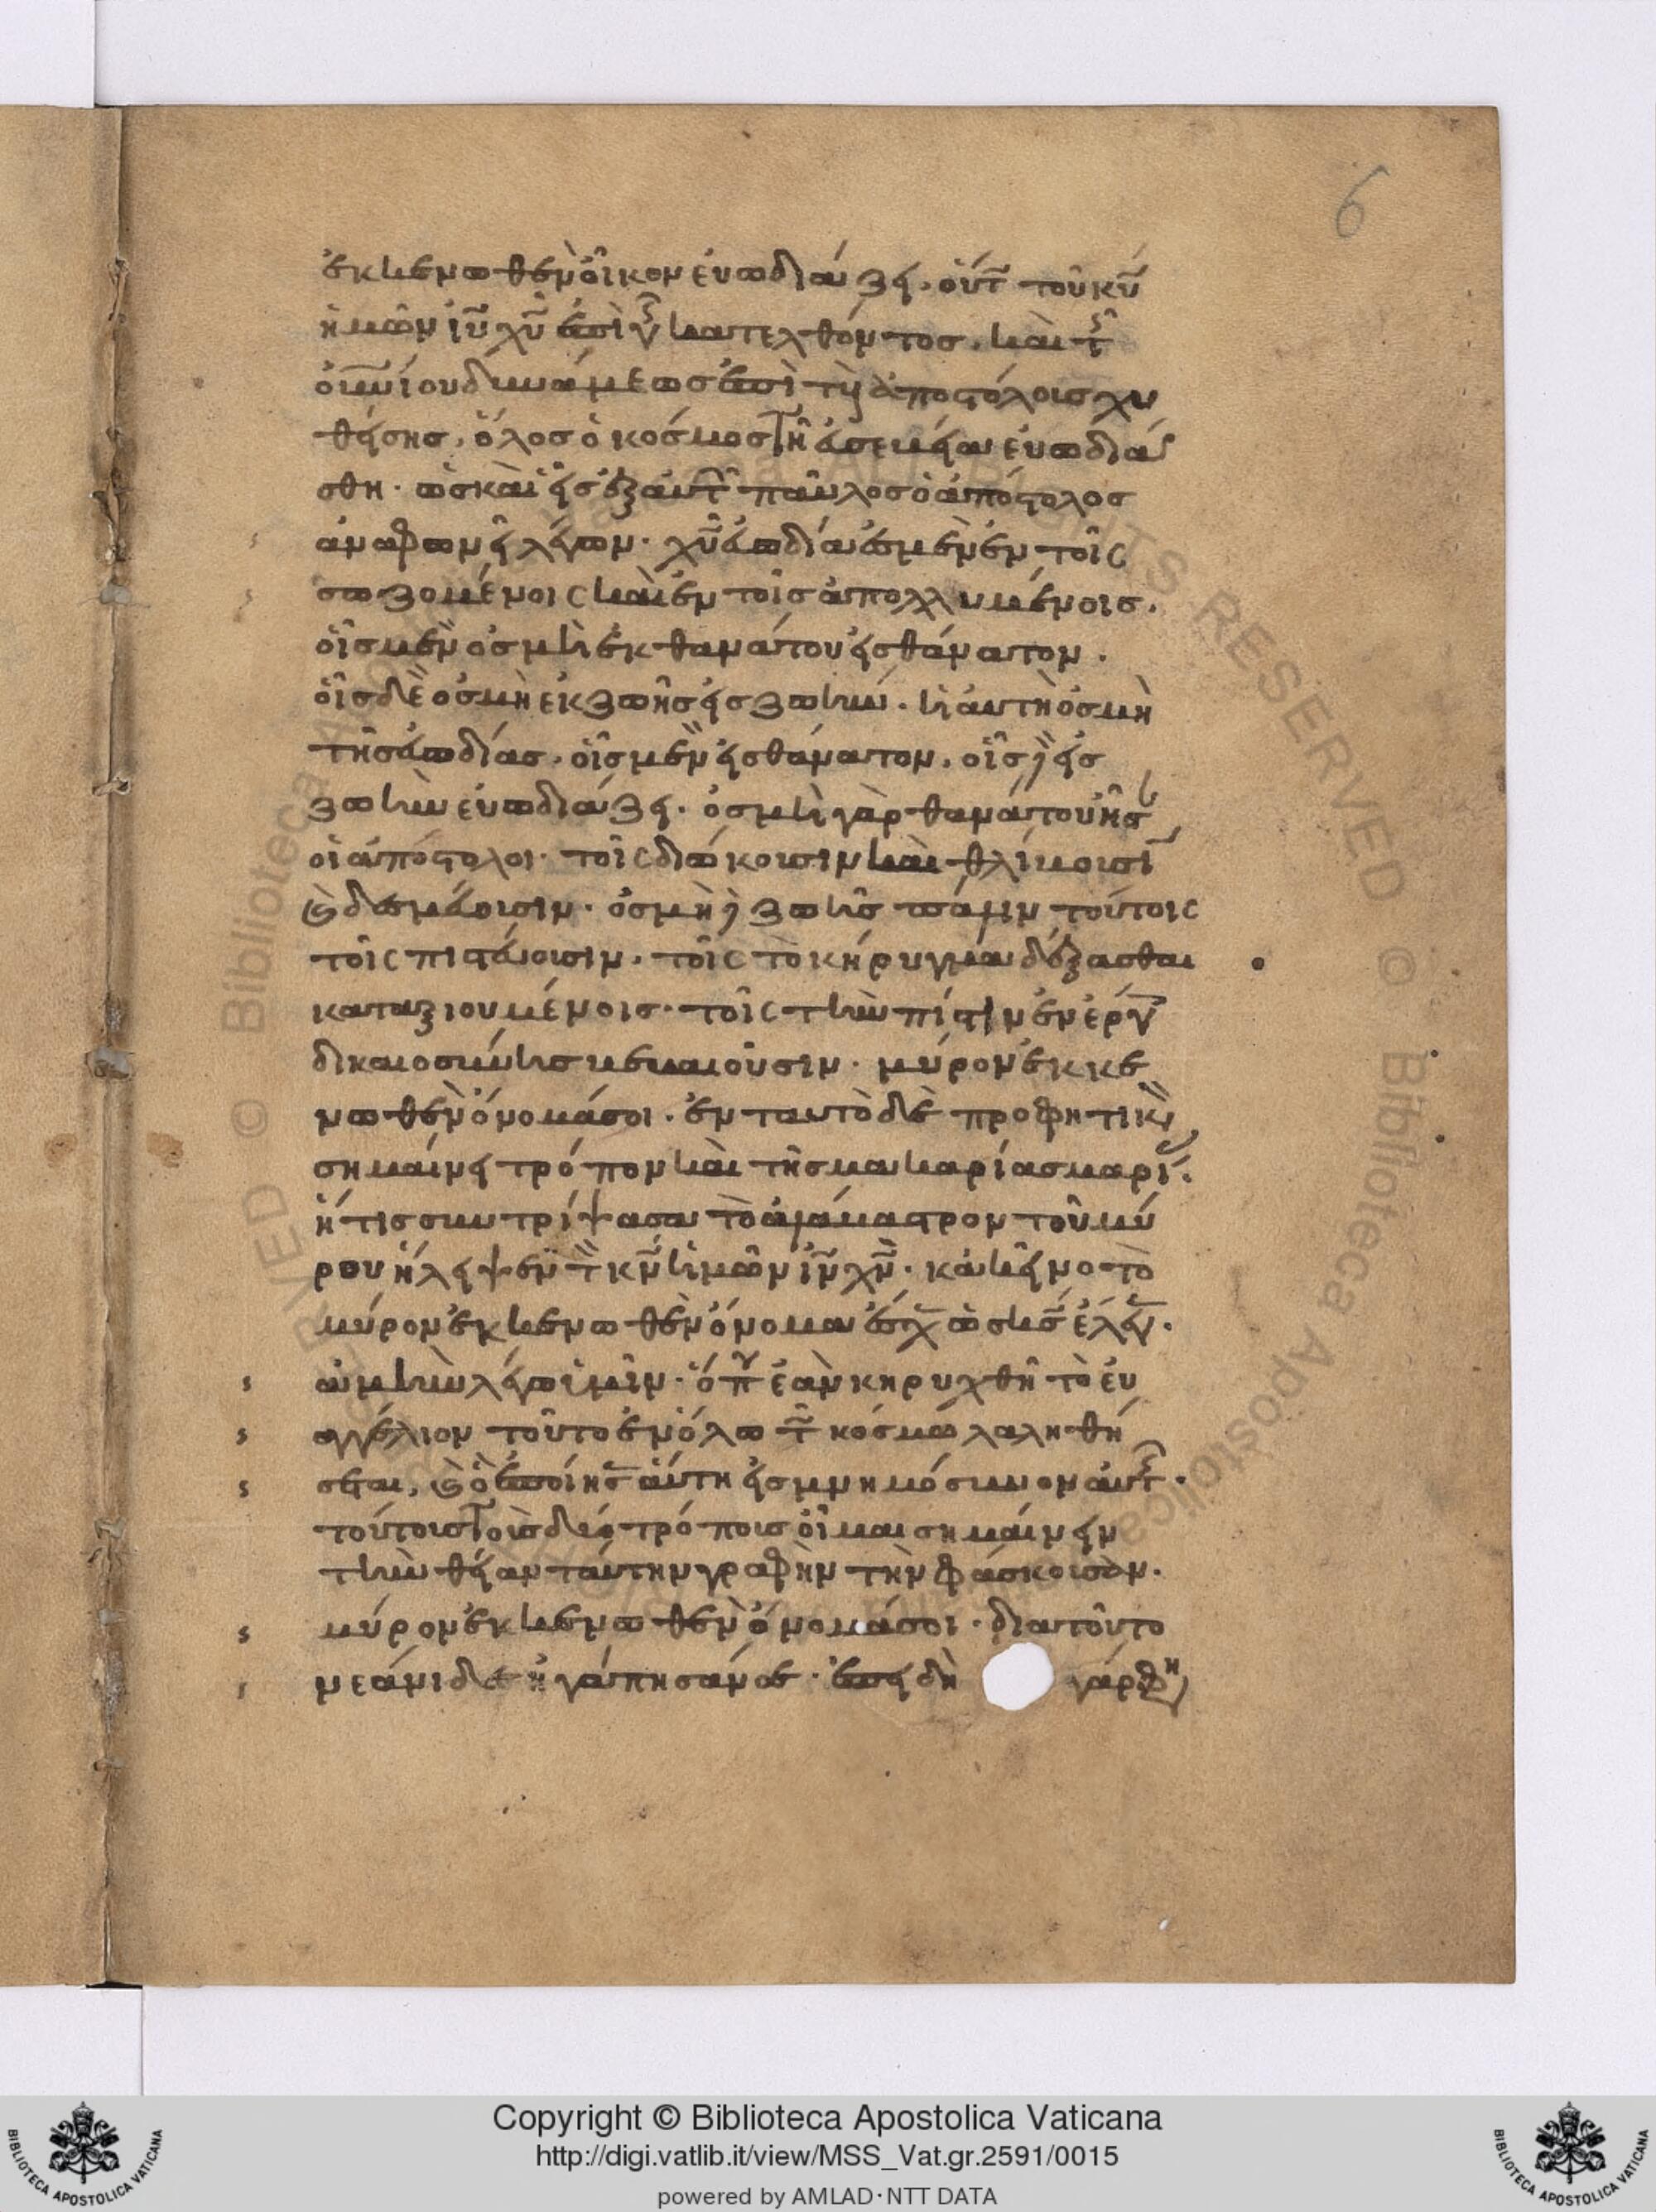 6
ἐκκενωθὲν οἶκον εὐωδιάζει. οὕτ τοῦ κυ
ἡμῶν ιυ χυ ἐπὶ γ κατελθόντος. καὶ τ
ου δυνάμεως ἐπὶ τῆ ἀποστόλοις χυ
θείσης, ὅλος ὁ κόσμος τῆ εὐωδιά
σθη. ὡς καὶ αὐτ παῦλος ὁ ἀπόστολος
ἀναφωνεῖ λέγων. χυ εὐωδία ἐσμὲν ἐν τοῖς
σωζομένοις καὶ ἐν τοῖς ἀπολλυμένοις.
οἷς μὲν ὀσμὴ ἐκ θανάτου εἰς θάνατον.
οἷς δὲ ὀσμὴ ἐκ ζωῆς εἰς ζωήν. ἡ αὐτὴ ὀσμὴ
τῆς εὐωδίας. οἷς μὲν εἰς θάνατον. οἷς δὲ εἰς
ζωὴν εὐωδιάζει. ὀσμὴ γὰρ θανάτου ἦσ
οἱ ἀπόστολοι. τοῖς διώκουσιν καὶ θλίβουσι
καὶ δεσμεύουσιν. ὀσμὴ δὲ ζωῆς πάλιν τούτοις
τοῖς πιστεύουσιν. τοῖς τὸ κήρυγμα δέξασθαι
καταξιουμένοις. τοῖς τὴν πίστιν ἐν ἔργ
δικαιοσύνης βεβαιοῦσιν. μύρον ἐκκε
νωθὲν ὄνομά σοι. ἐνταυτὸ δὲ προφητικὸν
σημαίνει τρόπον καὶ τῆς μακαρίας μαρί.
ἥτις συντρίψασα τὸ ἀλάβαστρον τοῦ μύ
ρου ἤλειψεν τ κν ἡμῶν ιν χν. κἀκεῖνο τὸ
μύρον ἐκκενωθὲν ὄνομα ἔσχ ὡς κς ἔλεγ.
ἀμὴν λέγω ὑμῖν. ὅπου ἐὰν κηρυχθῆ τὸ εὐ
αγγέλιον τοῦτο ἐν ὅλω τ κόσμω λαληθή
σεται, καὶ ὃ ἐποίησ αὕτη εἰς μνημόσυνον αὐτ.
τούτοις τοῖς δυσὶ τρόποις οἶμαι σημαίνειν
τὴν θείαν ταύτην γραφὴν τὴν φάσκουσαν.
μύρον ἐκκενωθὲν ὄνομά σοι. διατοῦτο
νεάνιδες ἠγάπησάν σε. ἐπειδὴ γάρ φη
Copyright © Biblioteca Apostolica Vaticana
http://digi.vatlib.it/view/MSS_Vat.gr.2591/0015
powered by AMLAD·NTT DATA
BIBLIOTECA APOSTOLICA VATICANA
BIBLIOTECA APOSTOLICA VATICANA